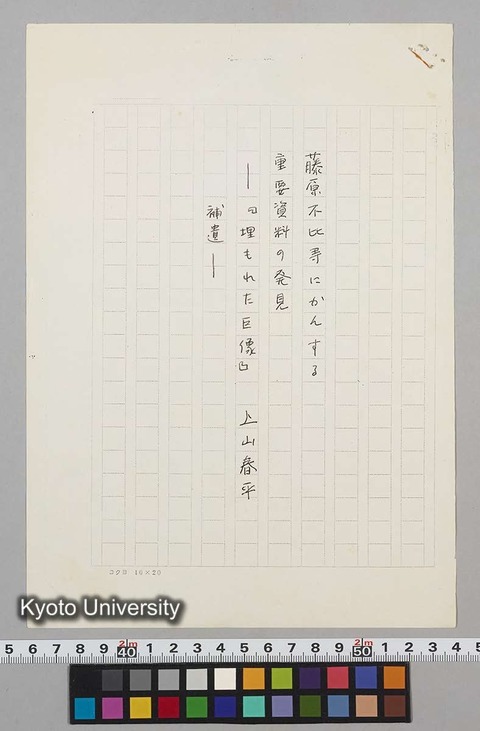 藤原不比等にかんする
重要資料の発見
―『埋もれた巨像』
補遺―
上山春平
コクヨ 10×20
Kyoto University
5 6 7 8 9 2m 40 1 2 3 4 5 6 7 8 9 2m 50 1 2 3 4 5